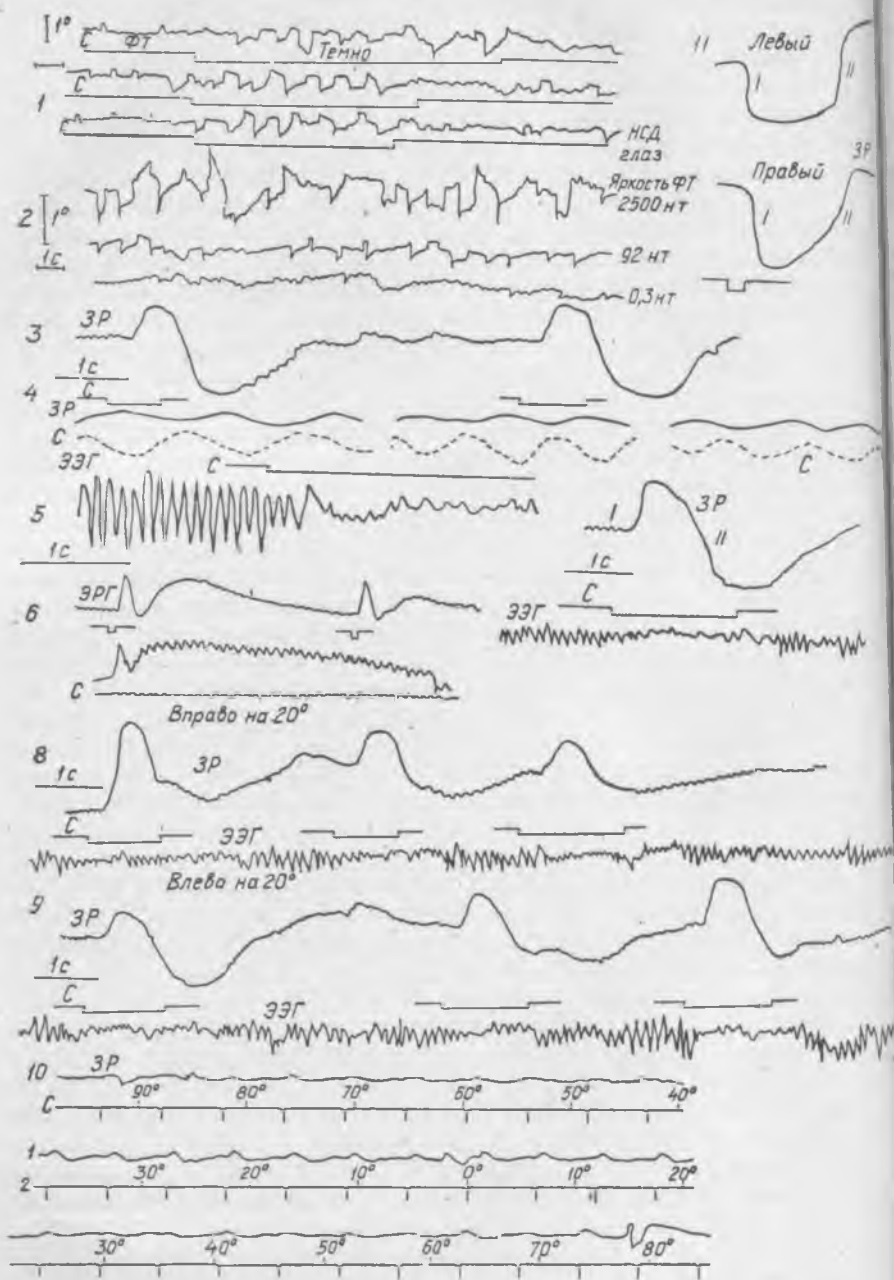 1°
С ФТ Темно
С
1
НСД
глаз
11 Левый
I II
ЗР
Правый
I II
2 1° Яркость ФТ
2500 нт
1с 92 нт
0,3 нт
3 ЗР
1с
4 С
ЗР
С С
ЭЭГ С
5
1с
I ЗР
II
1с
С
ЭЭГ
6 ЭРГ
С
Вправо на 20°
8 ЗР
1с
С ЭЭГ
Влево на 20°
9 ЗР
1с
С ЭЭГ
10 ЗР
90° 80° 70° 60° 50° 40°
С
1
30° 20° 10° 0° 10° 20°
2
30° 40° 50° 60° 70° 80°